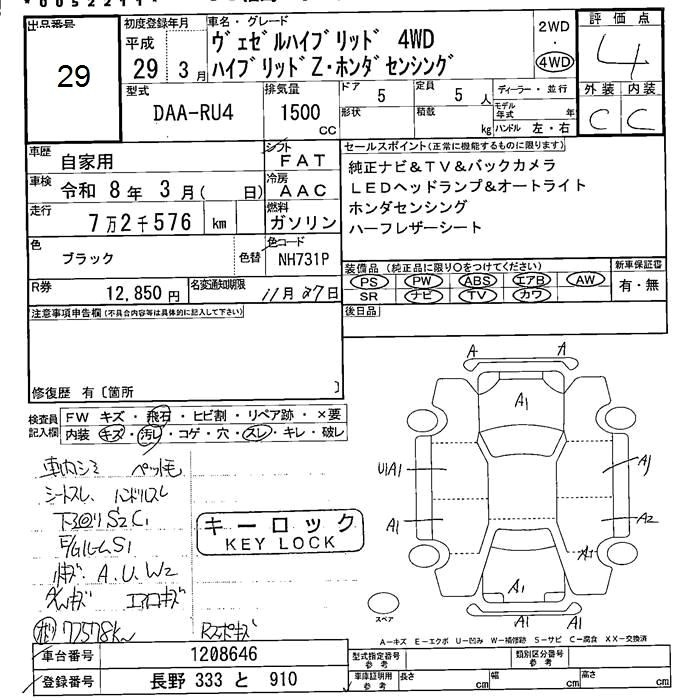 出品番号
29
初度登録年月
平成
29 3月
車名・グレード
ヴェゼルハイブリッド 4WD
ハイブリッドZ・ホンダセンシング
2WD
・
4WD
評価点
4
型式
DAA-RU4
排気量
1500
cc
ドア 5
定員 5 人
形状
積載 kg
ディーラー・並行
モデル年式 年
ハンドル 左・右
外装 内装
C C
車歴 自家用
シフト FAT
車検 令和 8年 3月( 日)
冷房 AAC
走行 7万2千576 km
燃料 ガソリン
色 ブラック
色替
色コード NH731P
R券 12,850円
名変通知期限 11月27日
セールスポイント(正常に機能するものに限ります)
純正ナビ&TV&バックカメラ
LEDヘッドランプ&オートライト
ホンダセンシング
ハーフレザーシート
装備品(純正品に限り○をつけてください)
PS PW ABS エアB AW
SR ナビ TV カワ
新車保証書
有・無
後日品
注意事項申告欄(不具合内容等は具体的に記入して下さい)
修復歴 有〔箇所 〕
検査員記入欄
FW キズ・飛石・ヒビ割・リペア跡・×要
内装 キズ・汚レ・コゲ・穴・スレ・キレ・破レ
車内シミ ペット毛
シートスレ、ハンドルスレ
下回りS2C1
S1
A.U.W2
エアロキズ
77578km
キーロック
KEY LOCK
A A
A1
U1A1
A1
A1
A2
A1
A1
A1 A1
スペア
A―キズ E―エクボ U―凹み W―補修跡 S―サビ C―腐食 XX―交換済
車台番号 1208646
登録番号 長野 333 と 910
型式指定番号 参考
類別区分番号 参考
車庫証明用 参考
長さ cm
幅 cm
高さ cm